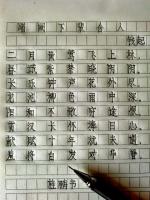 赠阙下裴舍人
钱起
二月黄飞上林
春城紫禁晓阴阴
长乐钟声花外尽
龙池柳色雨中深
阳和不散穷途恨
霄汉长怀捧日
献赋十年犹未遇
羞将白发对华簪
书